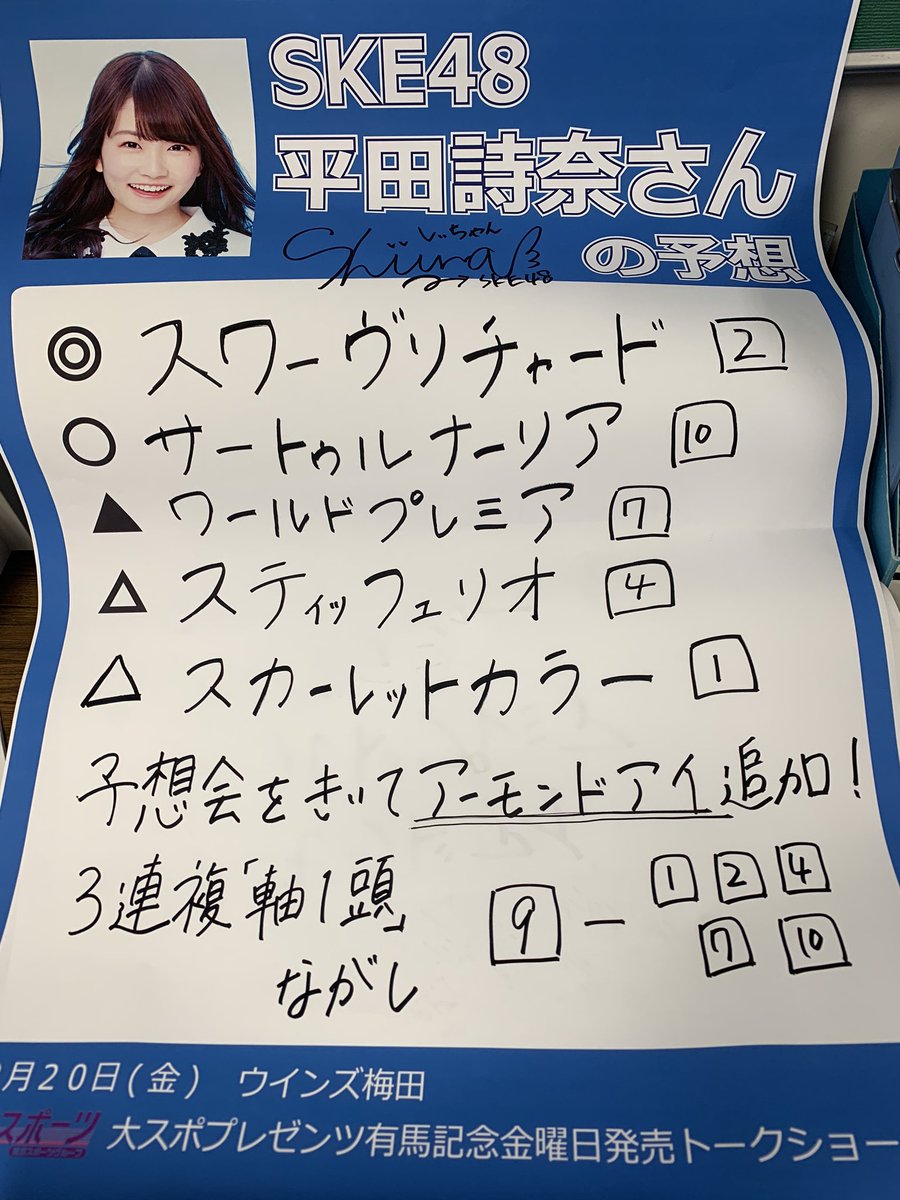 SKE48
平田詩奈さん
の予想
しぃちゃん
Shiina
SKE48
◎ スワーヴリチャード 2
○ サートゥルナーリア 10
▲ ワールドプレミア 7
△ スティッフェリオ 4
△ スカーレットカラー 1
予想会をきいてアーモンドアイ追加!
3連複「軸1頭」 9 − 1 2 4
ながし 7 10
月20日(金) ウインズ梅田
スポーツ
大スポプレゼンツ有馬記念金曜日発売トークショー